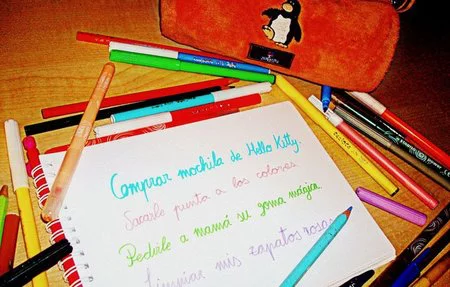 Comprar mochila de Hello Kitty.
Sacarle punta a los colores
Pedirle a mamá su goma mágica.
Limpiar mis zapatos rosas